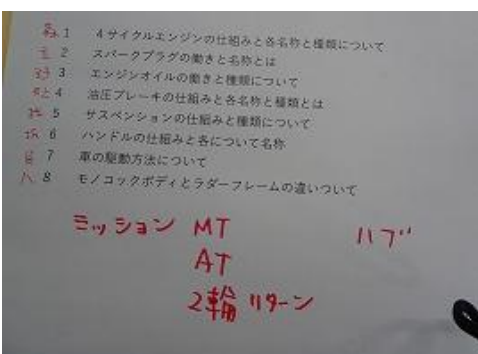 1 4サイクルエンジンの仕組みと各名称と種類について
2 スパークプラグの働きと名称とは
3 エンジンオイルの働きと種類について
4 油圧ブレーキの仕組みと各名称と種類とは
5 サスペンションの仕組みと種類について
6 ハンドルの仕組みと各について名称
7 車の駆動方法について
八 8 モノコックボディとラダーフレームの違いついて
ミッション MT ハブ
AT
2輪 リターン